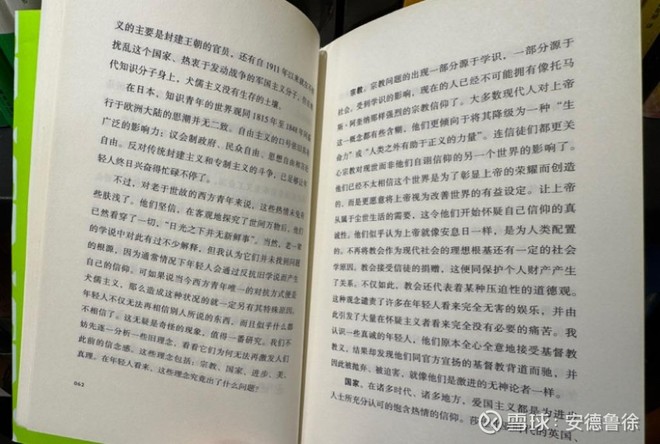 义的主要是封建王朝的官员，还有自1911年以来就在不断
扰乱这个国家、热衷于发动战争的军国主义分子；但在
代知识分子身上，犬儒主义没有生存的土壤。
在日本，知识青年的世界观同1815年至1848年间
行于欧洲大陆的思潮并无二致。自由主义的口号依
广泛的影响力：议会制政府、民众自由、思想自由和言论
自由。反对传统封建主义和专制主义的斗争，已足够让
轻人终日兴奋得忙碌不停了。
不过，对老于世故的西方青年来说，这些热情未免有
些肤浅了。他们坚信，在客观地探究了世间万物后，他们
已然看穿了一切，“日光之下并无新鲜事”。当然，老一辈
的学说中对此有过不少解释，但我认为它们并未找到问题
的根源，因为通常情况下年轻人会通过反抗旧学说而产生
自己的信仰。如果说当今西方青年唯一的对抗方式便是
犬儒主义，那么造成这种状况的就一定另有其特殊原因。
年轻人不仅无法再相信别人所说的东西，而且似乎什么都
不相信了。这无疑是奇怪的现象，值得一番研究。我们不
妨先逐一分析一些旧理念，看看它们为何无法再激发人们
此前的信念感。这些理念包括：宗教、国家、进步、美、
真理。在年轻人看来，这些理念究竟出了什么问题？
062
宗教。宗教问题的出现一部分源于学识，一部分源于
社会。受到学识的影响，现在的人已经不可能拥有像托马
斯·阿奎纳那样强烈的宗教信仰了。大多数现代人对上帝
这一概念都有些含糊，他们更倾向于将其降级为一种“生
命力”或“人类之外有助于正义的力量”。连信徒们都更关
心宗教对现世而非他们自诩信仰的另一个世界的影响了。
他们已经不太相信这个世界是为了彰显上帝的荣耀而创造
的，而更愿意将上帝视为改善世界的有益设定。让上帝
从属于尘世生活的需要，这令他们开始怀疑自己信仰的真
诚性。他们似乎认为上帝就像安息日一样，是为人类配置
的。不再将教会作为现代社会的理想根基还有一定的社会
学原因。教会接受信徒的捐赠，这使同保护个人财产产生
了关系。不仅如此，教会还代表着某种压迫性的道德观。
这种观念谴责了许多在年轻人看来完全无害的娱乐，并由
此引发了大量在怀疑主义者看来完全没有必要的痛苦。我
认识一些真诚的年轻人，他们原本全心全意地接受基督教
教义，结果却发现他们同官方宣扬的基督教背道而驰，并
因此被抛弃、被迫害。就像他们是激进的无神论者一样。
国家。在诸多时代、诸多地方，爱国主义都是为进步
人士所充分认可的饱含热情的信仰。莎
代的英国
雪球：安德鲁徐